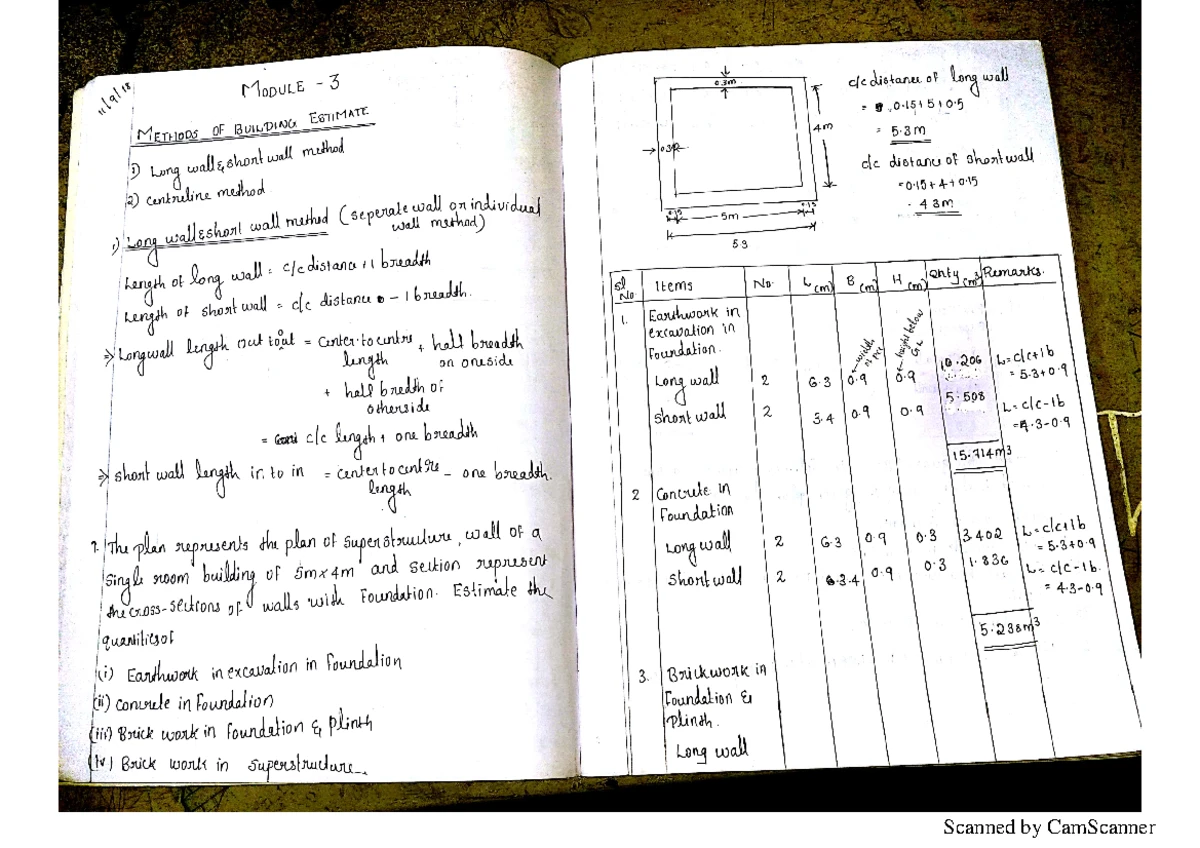 11/9/18
MODULE - 3
METHODS OF BUILDING ESTIMATE
1) Long wall & short wall method
2) centreline method
1) Long wall & short wall method (seperate wall or individual
wall method)
Length of long wall = c/c distance + 1 breadth
Length of short wall = c/c distance - 1 breadth.
=> Longwall length out to out = center to centre + half breadth
length on oneside
+ half bredth of
otherside
= c/c length + one breadth
=> short wall length in to in = center to centre - one breadth.
length
?. The plan represents the plan of superstructure, wall of a
single room building of 5m x 4m and section represent
the cross-sections of walls with foundation. Estimate the
quantities of
(i) Earthwork in excavation in foundation
(ii) concrete in foundation
(iii) Brick work in foundation & plinth
(iv) Brick work in superstructure
0.3m
4m
5m
5.3
c/c distance of long wall
= 0.15+5+0.5
= 5.3m
c/c distance of short wall
= 0.15+4+0.15
4.3m
Sl No Items No. L (m) B (m) H (m) Qnty (m³) Remarks.
1. Earthwork in
excavation in
foundation.
height below
Long wall 2 6.3 0.9 0.9 10.206 L= c/c+1b
= 5.3+0.9
Short wall 2 3.4 0.9 0.9 5.508 L= c/c-1b
=4.3-0.9
15.714m³
2 Concrete in
foundation
Long wall 2 6.3 0.9 0.3 3.402 L= c/c+1b
= 5.3+0.9
Short wall 2 3.4 0.9 0.3 1.836 L= c/c-1b.
= 4.3-0.9
5.238m³
3. Brickwork in
foundation &
plinth.
Long wall
Scanned by CamScanner